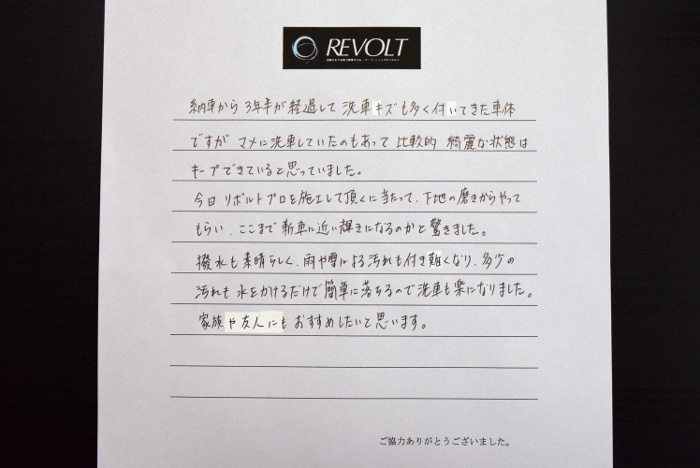 REVOLT
納車から3年半が経過して洗車キズも多く付いてきた車体
ですが マメに洗車していたのもあって 比較的 綺麗な状態は
キープできていると思っていました。
今日 リボルトプロを施工して頂くに当たって、下地の磨きからやって
もらい、ここまで新車に近い輝きになるのかと驚きました。
撥水も素晴らしく、雨や雪による汚れも付き難くなり、多少の
汚れも 水をかけるだけで簡単に落ちるので洗車も楽になりました。
家族や友人にもおすすめしたいと思います。
ご協力ありがとうございました。